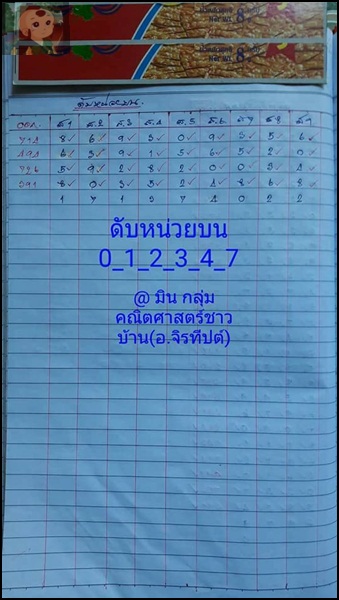 ดับหน่วยบน.
งวด. ส.1 ส.2 ส.3 ส.4 ส.5 ส.6 ส.7 ส.8 ส.9
8✓ 6✓ 9✓ 3✓ 0✓ 9✓ 3✓ 5✓ 6✓
494 6✓ 3✓ 9✓ 1✓ 3✓ 6✓ 5✓ 2✓ 0✓
726 5✓ 9✓ 2✓ 8✓ 2✓ 0✓ 0✓ 3✓ 4✓
391 8✓ 0✓ 3✓ 3✓ 2✓ 4✓ 8✓ 6✓ 8✓
1 7 1 3 7 4 0 2 2
ดับหน่วยบน
0_1_2_3_4_7
@ มิน กลุ่ม
คณิตศาสตร์ชาว
บ้าน(อ.จิรทีปต์)